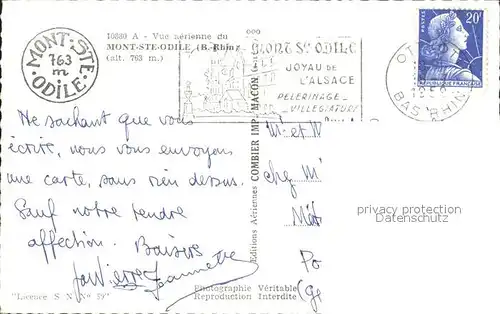 10880 A - Vue aérienne du
MONT-STE-ODILE (B.-Rhin)
(alt. 763 m.)
MONT-STE-ODILE
763
m
MONT STE ODILE
JOYAU DE
L'ALSACE
PELERINAGE_
_ VILLEGIATURE
POSTES
20F
REPUBLIQUE FRANÇAISE
OT
BAS RHIN
Ne sachant que vous
écrire, nous vous envoyons
une carte, sans rien dessus.
Sauf notre tendre
affection. Baisers
Jeannette
Éditions Aériennes COMBIER IMP. MACON
M. et M
chez M
Po
(Ge
privacy protection
Datenschutz
"Licence S N N° 59"
Photographie Véritable
Reproduction Interdite